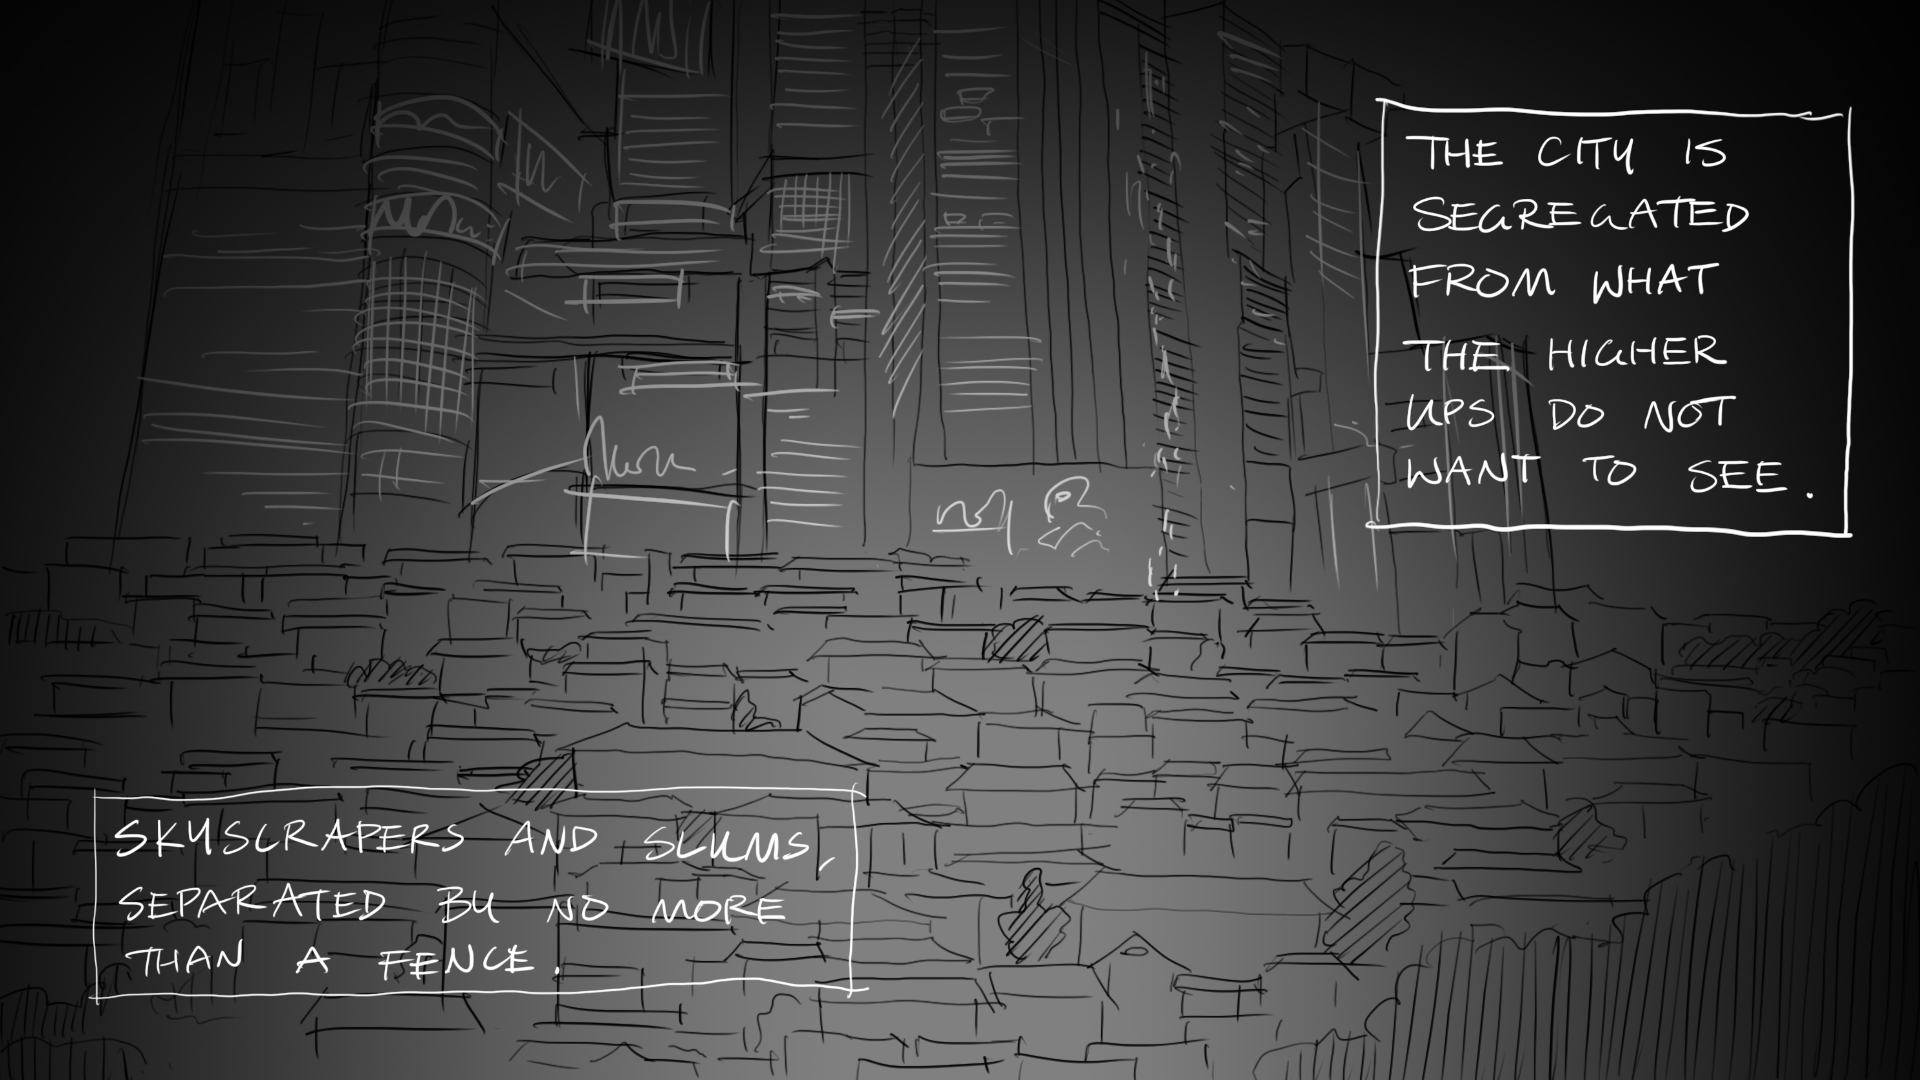 THE CITY IS
SEGREGATED
FROM WHAT
THE HIGHER
UPS DO NOT
WANT TO SEE.
SKYSCRAPERS AND SLUMS,
SEPARATED BY NO MORE
THAN A FENCE.